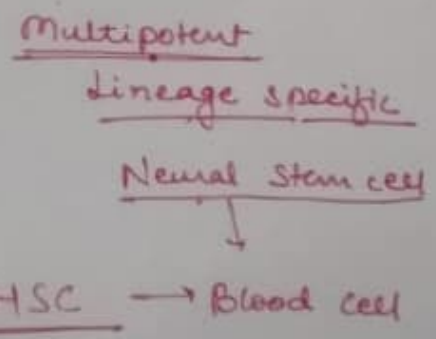 Multipotent
Lineage specific
Neural Stem cell
↓
HSC → Blood cell